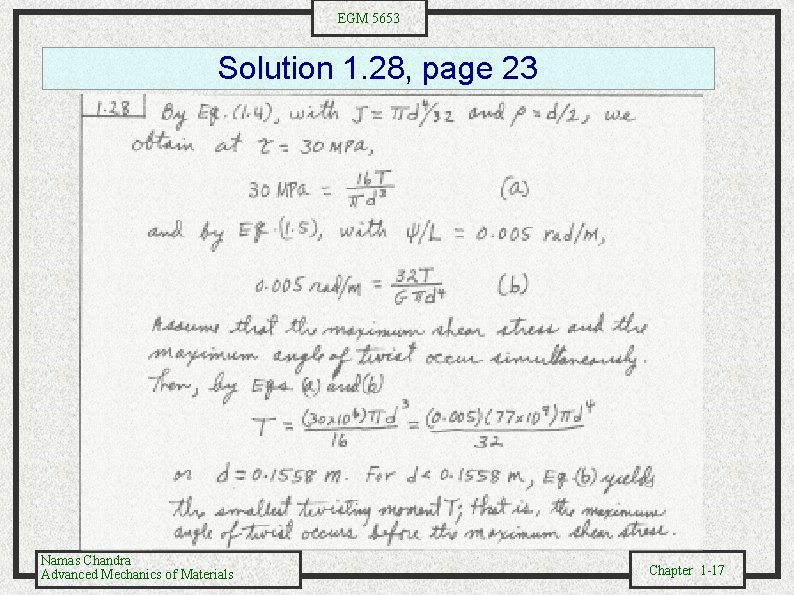 EGM 5653
Solution 1.28, page 23
1.28 By Eq. (1.4), with J = πd⁴/32 and ρ = d/2, we
obtain at τ = 30 MPa,
30 MPa = 16T/πd³ (a)
and by Eq. (1.5), with ψ/L = 0.005 rad/m,
0.005 rad/m = 32T/Gπd⁴ (b)
Assume that the maximum shear stress and the
maximum angle of twist occur simultaneously.
Then, by Eqs (a) and (b)
T = (30x10⁶)πd³/16 = (0.005)(77x10⁹)πd⁴/32
or d = 0.1558 m. For d < 0.1558 m, Eq (b) yields
the smallest twisting moment T; that is, the maximum
angle of twist occurs before the maximum shear stress.
Namas Chandra
Advanced Mechanics of Materials
Chapter 1-17